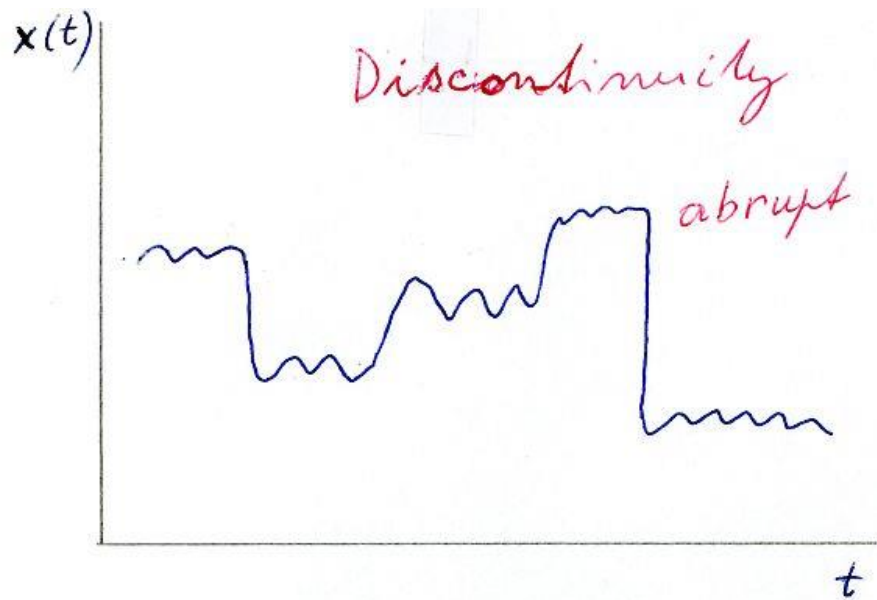 x(t)
Discontinuity
abrupt
t